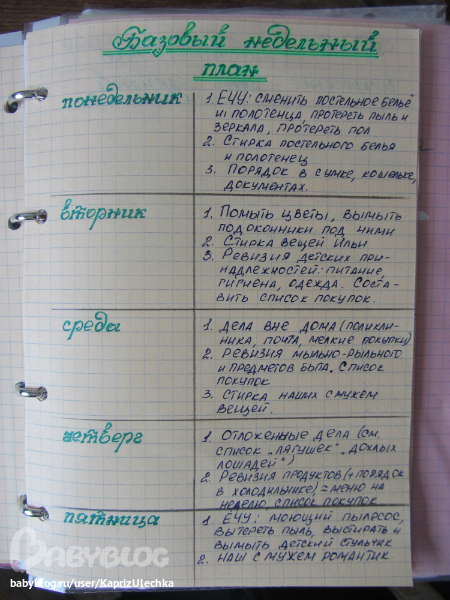 Базовый недельный
план
понедельник
1. ЕЧУ: сменить постельное бельё
и полотенца, протереть пыль и
зеркала, протереть пол
2. Стирка постельного белья
и полотенец
3. Порядок в сумке, кошельке,
документах.
вторник
1. Помыть цветы, вымыть
подоконники под ними
2. Стирка вещей Ильи
3. Ревизия детских при-
надлежностей: питание,
гигиена, одежда. Соста-
вить список покупок.
среда
1. Дела вне дома (поликли-
ника, почта, мелкие покупки)
2. Ревизия мыльно-рыльного
и предметов быта. Список
покупок
3. Стирка наших с мужем
вещей.
четверг
1. Отложенные дела (см.
список „лягушек", „дохлых
лошадей")
2. Ревизия продуктов (+порядок
в холодильнике) = меню на
неделю, список покупок
пятница
1. ЕЧУ: моющий пылесос,
вытереть пыль, выстирать и
вымыть детский стульчик
2. Наш с мужем романтик
BABYBLOG
babyblog.ru/user/KaprizUlechka